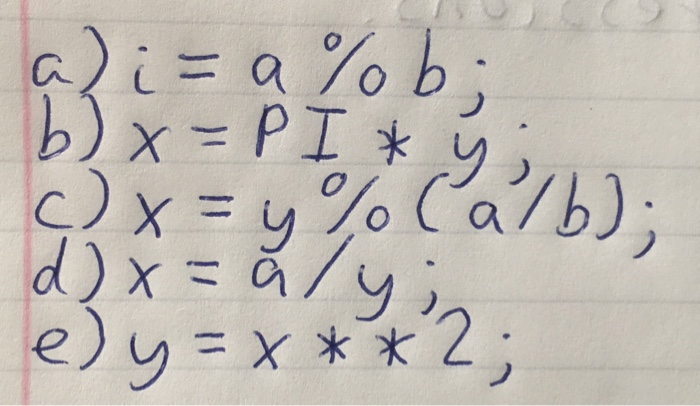 a) i = a % b;
b) x = PI * y;
c) x = y % (a/b);
d) x = a/y;
e) y = x * * 2;